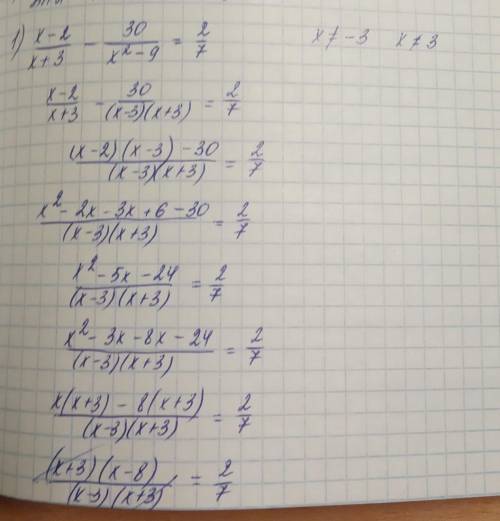 1) (x-2)/(x+3) - 30/(x²-9) = 2/7 x≠-3 x≠3
(x-2)/(x+3) - 30/((x-3)(x+3)) = 2/7
((x-2)(x-3)-30)/((x-3)(x+3)) = 2/7
(x²-2x-3x+6-30)/((x-3)(x+3)) = 2/7
(x²-5x-24)/((x-3)(x+3)) = 2/7
(x²-3x-8x-24)/((x-3)(x+3)) = 2/7
(x(x+3)-8(x+3))/((x-3)(x+3)) = 2/7
((x+3)(x-8))/((x-3)(x+3)) = 2/7